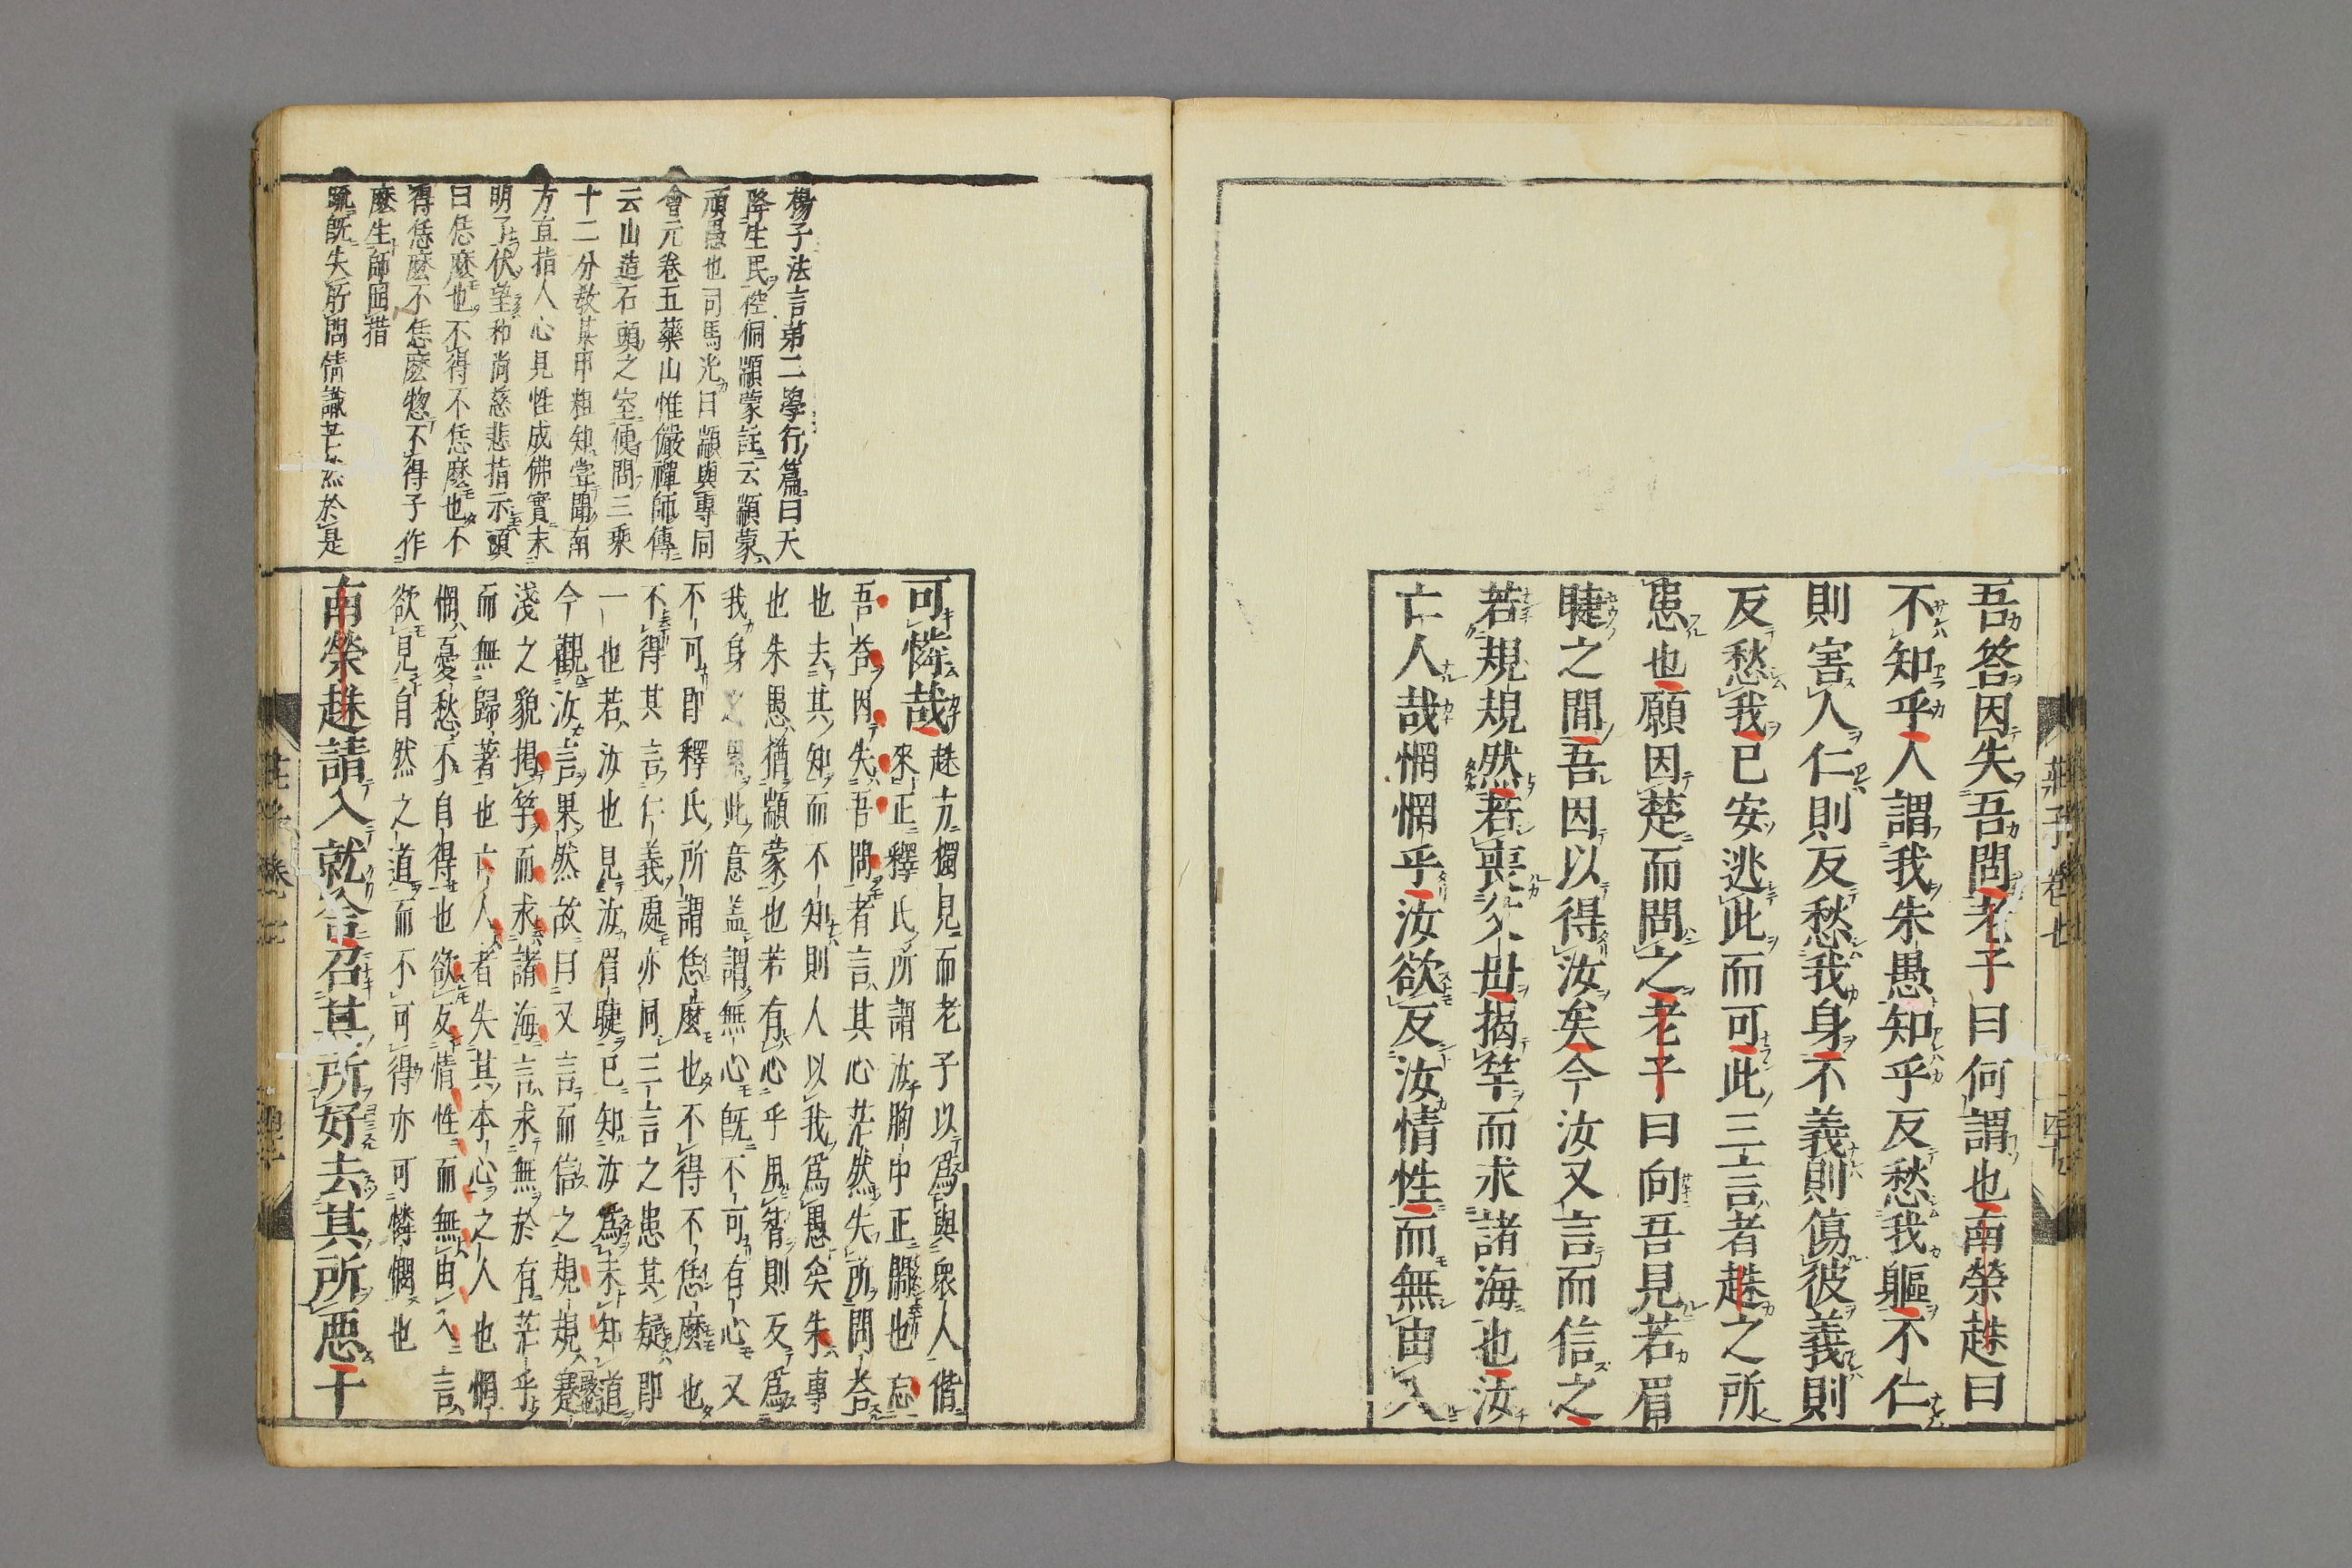 吾答因失吾問老子曰何謂也南榮趎曰
不知乎人謂我朱愚知乎反愁我軀不仁
則害人仁則反愁我身不義則傷彼義則
反愁我已安逃此而可此三言者趎之所
患也願因楚而問之老子曰向吾見若眉
睫之間吾因以得汝矣今汝又言而信之
若規規然若喪父母揭竿而求諸海也汝
亡人哉惘惘乎汝欲反汝情性而無由入
莊子 卷七
楊子法言第二學行篇曰天
降生民倥侗顓蒙註云顓蒙
頑愚也司馬光曰顓與專同
會元卷五藥山惟儼禪師傳
云山造石頭之室便問三乘
十二分教某甲粗知嘗聞南
方直指人心見性成佛實未
明了伏望和尚慈悲指示頭
曰恁麼也不得不恁麼也不
得恁麼不恁麼惣不得子作
麼生師罔措
既失所問情識芒然於是
可憐哉趎方獨見而老子以為與衆人偕
來正釋氏所謂汝胸中正鬧也忘
吾答因失吾問者言其心茫然失所問答
也去其知而不知則人以我為愚矣朱專
也朱愚猶顓蒙也若有心乎用智則反為
我身之累此意蓋謂無心既不可有心又
不可即釋氏所謂恁麼也不得不恁麼也
不得其言仁義處亦同三言之患其疑即
一也若汝也見汝眉睫已知汝為未知道
今觀汝言果然故曰又言而信之規規蹇
淺之貌揭竿而求諸海言求無於有茫乎
而無歸著也亡人者失其本心之人也惘
惘憂愁不自得也欲反情性而無由入言
欲見自然之道而不可得亦可憐憫也
南榮趎請入就舍召其所好去其所惡十